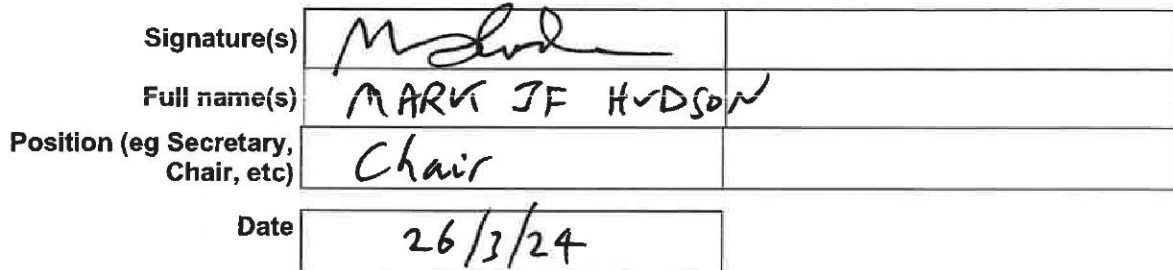 Signature(s)
Full name(s) MARK JF HUDSON
Position (eg Secretary,
Chair, etc) Chair
Date 26/3/24